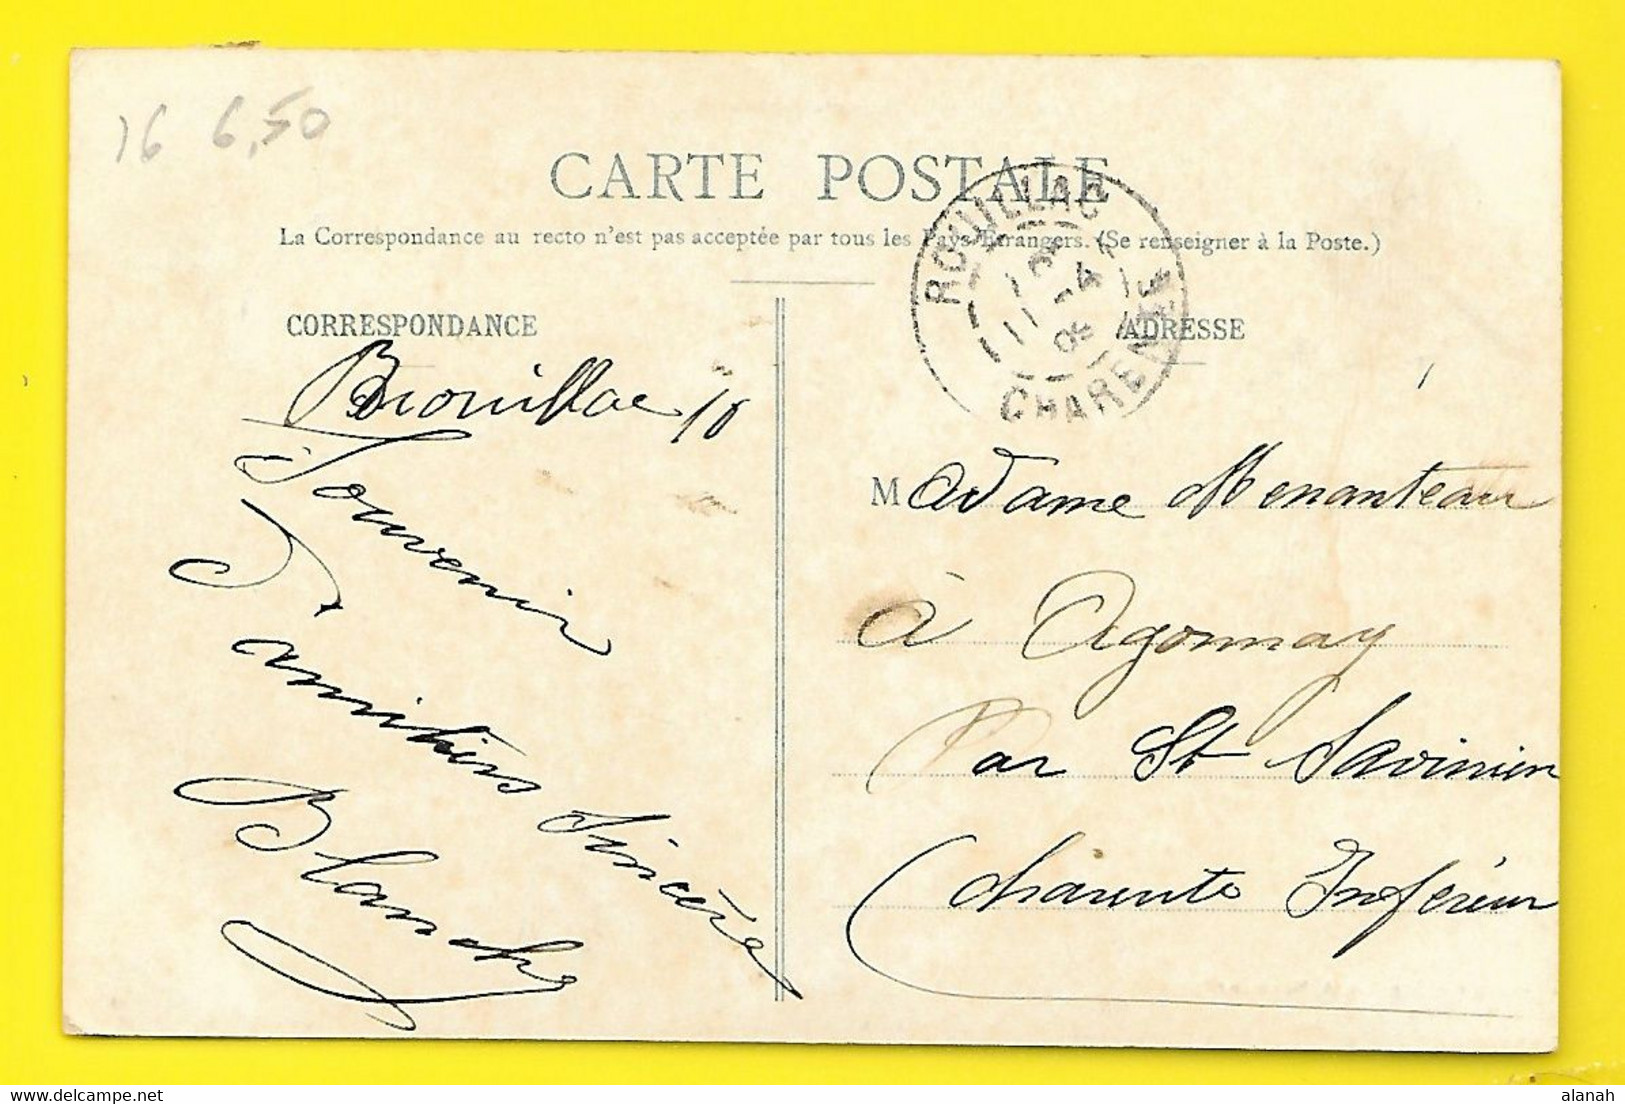 16 6,50
CARTE POSTALE
La Correspondance au recto n'est pas acceptée par tous les Pays Etrangers. (Se renseigner à la Poste.)
ROUILLAC
CHARENTE
CORRESPONDANCE
ADRESSE
Souvenir
D'amitiés Sincère
Blanche
Madame Menanteau
à Agonnay
Par St Savinien
Charente Inférieur
alanah